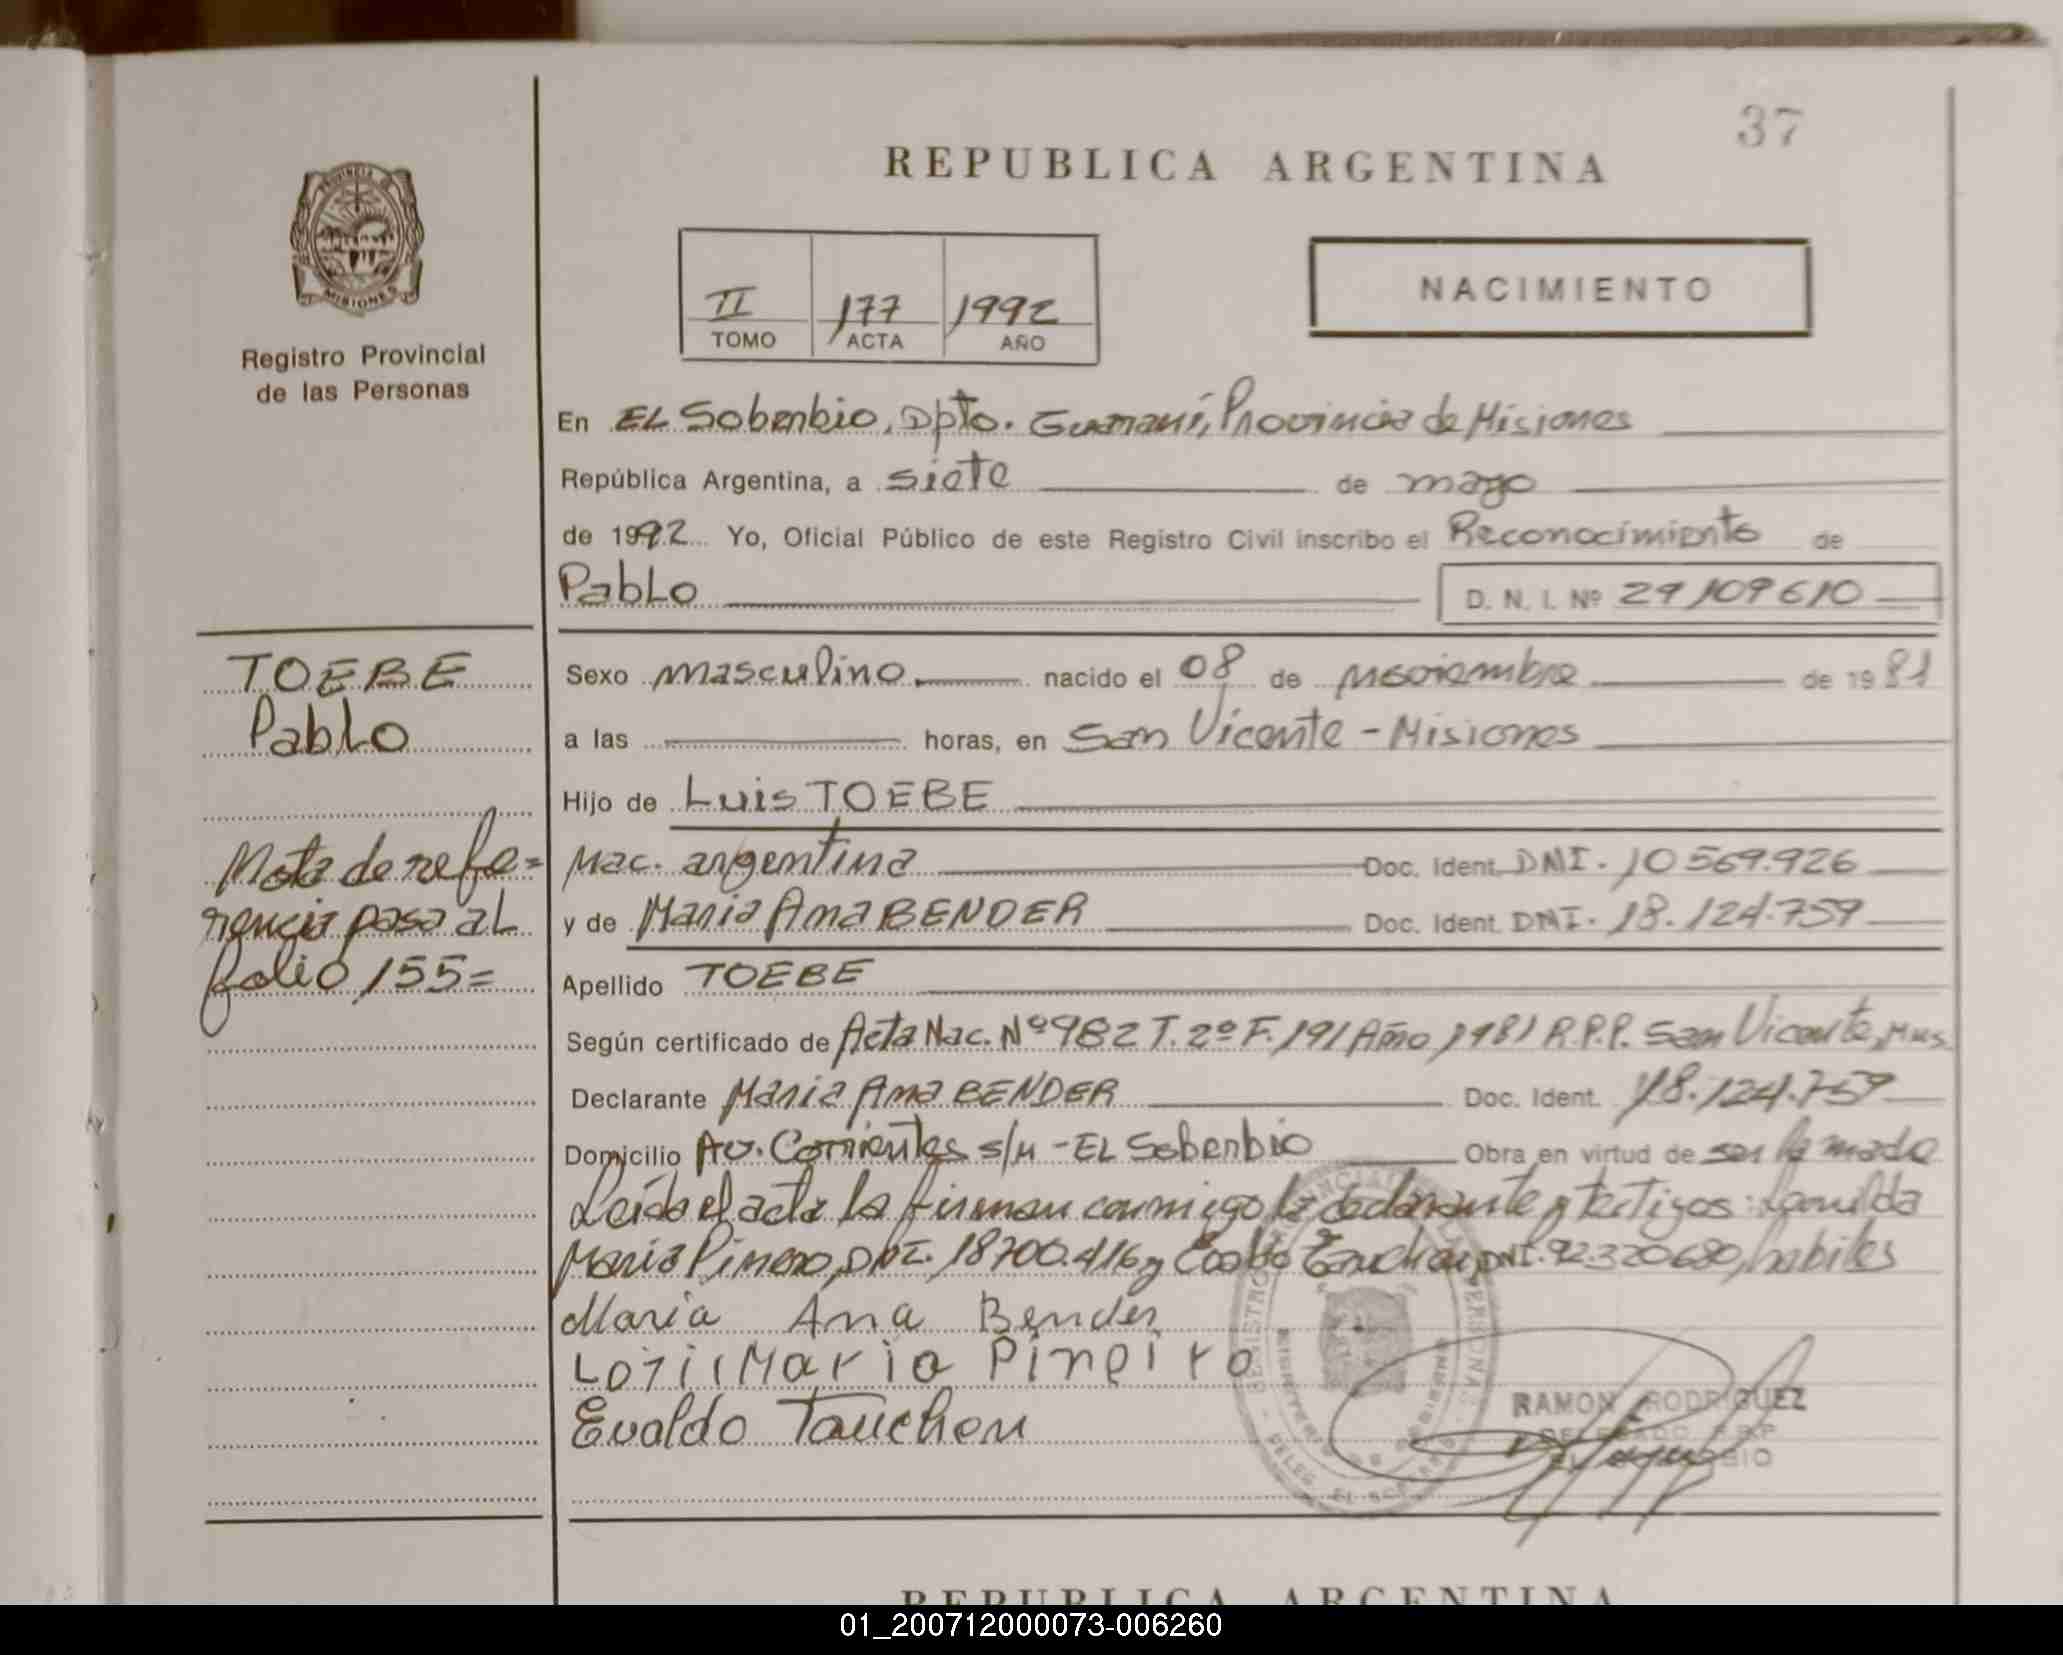 37
REPUBLICA ARGENTINA
PROVINCIA DE
MISIONES
Registro Provincial
de las Personas
II 177 1992
TOMO ACTA AÑO
NACIMIENTO
En EL Soberbio, Dpto. Guaraní, Provincia de Misiones
República Argentina, a siete de mayo
de 1992 Yo, Oficial Público de este Registro Civil inscribo el Reconocimiento de
Pablo D. N. I. Nº 29109610
TOEBE
Pablo
Nota de refe=
rencia pasa al
folio 155=
Sexo masculino. nacido el 08 de noviembre de 1981
a las horas, en San Vicente - Misiones
Hijo de Luis TOEBE
Nac. argentina Doc. Ident. DNI. 10569.926
y de Maria Ana BENDER Doc. Ident. DNI. 18.124.759
Apellido TOEBE
Según certificado de Acta Nac. Nº 982 T. 2º F. 191 Año 1981 R.P.P. San Vicente, Mns.
Declarante Maria Ana BENDER Doc. Ident. 18.124.759
Domicilio Av. Corrientes s/n - EL Soberbio Obra en virtud de ser la madre
Leída el acta la firman conmigo la declarante y testigos:
Maria DNI. 18700.416 y DNI. 92.320680, habiles
Maria Ana Bender
Maria Piñeiro
Evaldo Tauchen
RAMON RODRIGUEZ
DELEGADO R.P.P.
EL SOBERBIO
MINISTERIO DE GOBIERNO
DELEG. EL SOBERBIO
REPUBLICA ARGENTINA
01_200712000073-006260